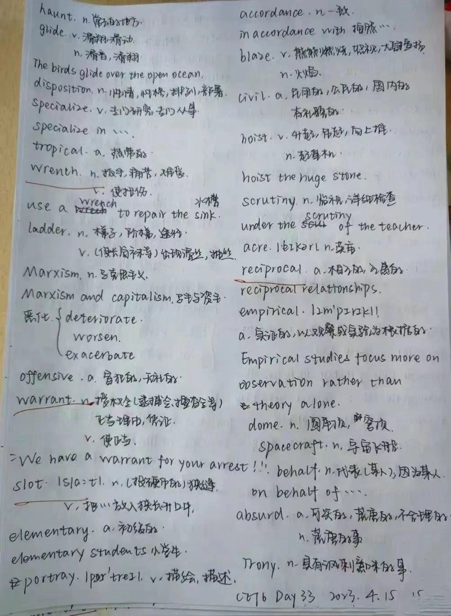 haunt. n. 常去的地方
glide. v. 滑翔,滑动
n. 滑音,滑翔
The birds glide over the open ocean.
disposition. n. 性情,性格,排列,部署
specialize. v. 专门研究,专门从事
specialize in ….
tropical. a. 热带的
wrench. n. 扳手,扭伤
v. 使扭伤
use a wrench to repair the sink. 水槽
ladder. n. 梯子,阶梯,途径
Marxism. n. 马克思主义
Marxism and capitalism.
恶化 { deteriorate.
worsen.
exacerbate
offensive. a. 冒犯的,无礼的
warrant. n.
正当理由,凭证
v. 使正当
We have a warrant for your arrest!!!
slot. |slɑ:t|. n. (投硬币的)狭缝
v. 把…放入狭长开口中
elementary. a. 初级的
elementary students 小学生
portray. |pɔr'treɪ|. v. 描绘,描述.
accordance. n. 一致
in accordance with
blaze. v. 熊熊燃烧,
n. 火焰
civil. a. 民用的,公民的,国内的
有礼貌的
hoist. v. 升起,吊起,向上推
n. 起重机
hoist the huge stone.
scrutiny. n. 监视,详细检查
under the scrutiny of the teacher.
acre. |eɪkər| n. 英亩
reciprocal. a. 相互的,互惠的
reciprocal relationships.
empirical. |ɪmˈpɪrɪkl|
a. 实证的,以观察或实验为根据的
Empirical studies focus more on
observation rather than
theory alone.
dome. n. 圆屋顶,
spacecraft. n. 宇宙飞船
behalf. n. 代表(某人),因为某人
on behalf of ….
absurd. a. 可笑的,荒唐的,不合理的
n. 荒唐的事
Irony. n. 具有讽刺意味的事
CET6 Day 33 2023. 4. 15